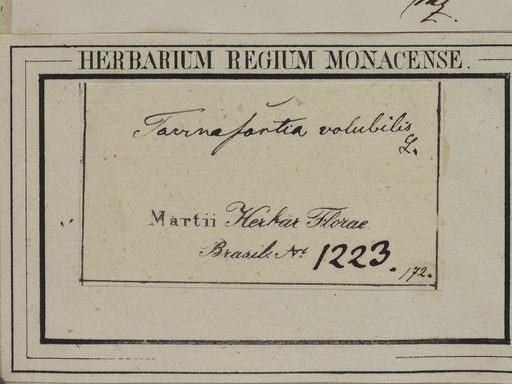 HERBARIUM REGIUM MONACENSE.
Tournafortia volubilis
L.
Martii Herbar Florae
Brasil: No. 1223.
172.